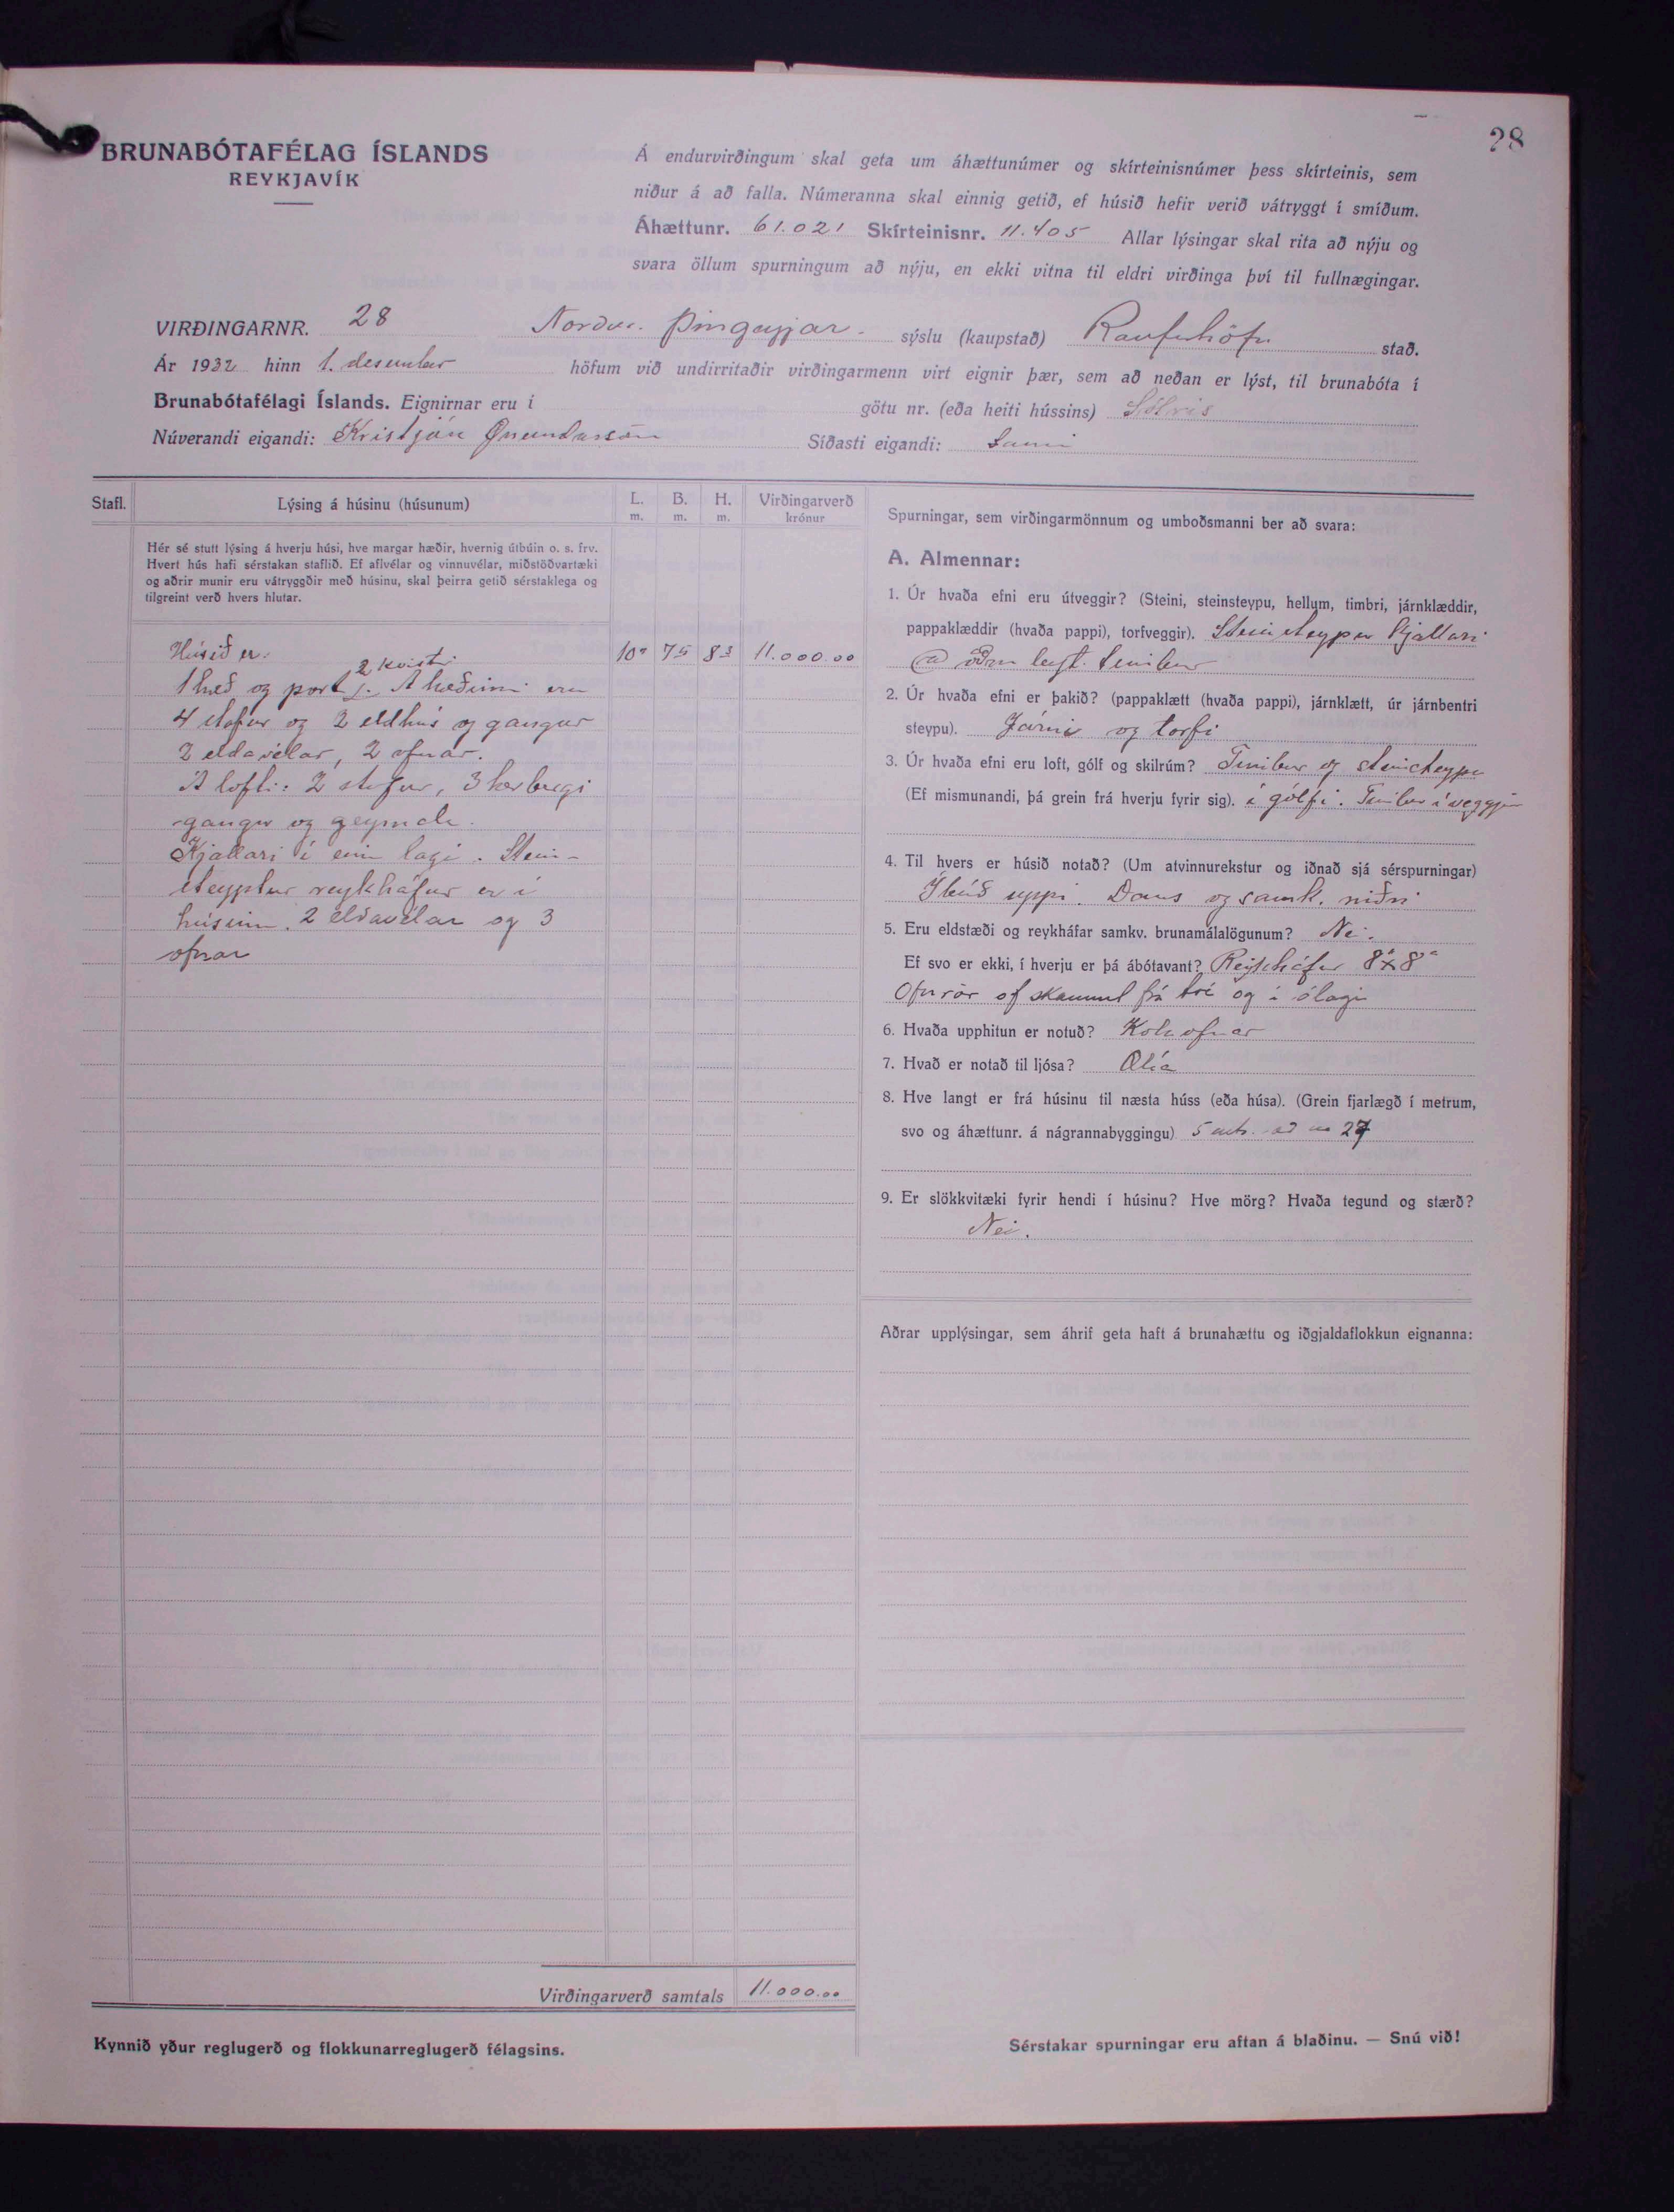 28
BRUNABÓTAFÉLAG ÍSLANDS
REYKJAVÍK
Á endurvirðingum skal geta um áhættunúmer og skírteinisnúmer þess skírteinis, sem
niður á að falla. Númeranna skal einnig getið, ef húsið hefir verið vátryggt í smíðum.
Áhættunr. 61.021 Skírteinisnr. 11.405 Allar lýsingar skal rita að nýju og
svara öllum spurningum að nýju, en ekki vitna til eldri virðinga því til fullnægingar.
VIRÐINGARNR. 28 Norður. Þingeyjar. sýslu (kaupstað) Raufarhöfn stað.
Ár 1932 hinn 1. desember höfum við undirritaðir virðingarmenn virt eignir þær, sem að neðan er lýst, til brunabóta í
Brunabótafélagi Íslands. Eignirnar eru í götu nr. (eða heiti hússins)
Núverandi eigandi: Kristján Önundarson Síðasti eigandi: Sami
Stafl. Lýsing á húsinu (húsunum) L. m. B. m. H. m. Virðingarverð krónur
Hér sé stutt lýsing á hverju húsi, hve margar hæðir, hvernig útbúin o. s. frv.
Hvert hús hafi sérstakan staflið. Ef aflvélar og vinnuvélar, miðstöðvartæki
og aðrir munir eru vátryggðir með húsinu, skal þeirra getið sérstaklega og
tilgreint verð hvers hlutar.
Húsið er: 10⁰ 7⁵ 8³ 11.000.00
2 kvistir
1 hæð og port. Á hæðinni eru
4 stofur og 2 eldhús og gangur
2 eldavélar, 2 ofnar.
Á lofti: 2 stofur, 3 herbergi
gangur og geymsla.
Kjallari í einu lagi. Stein-
steyptur reykháfur er í
húsinu. 2 eldavélar og 3
ofnar
Virðingarverð samtals 11.000.00
Kynnið yður reglugerð og flokkunarreglugerð félagsins.
Spurningar, sem virðingarmönnum og umboðsmanni ber að svara:
A. Almennar:
1. Úr hvaða efni eru útveggir? (Steini, steinsteypu, hellum, timbri, járnklæddir,
pappaklæddir (hvaða pappi), torfveggir). Steinsteypu kjallari
timbur
2. Úr hvaða efni er þakið? (pappaklætt (hvaða pappi), járnklætt, úr járnbentri
steypu). Járni og torfi
3. Úr hvaða efni eru loft, gólf og skilrúm? Timbur og steinsteypu
(Ef mismunandi, þá grein frá hverju fyrir sig). í gólfi. Timbur í veggjum
4. Til hvers er húsið notað? (Um atvinnurekstur og iðnað sjá sérspurningar)
Íbúð uppi. Dans og samk. niðri
5. Eru eldstæði og reykháfar samkv. brunamálalögunum? Nei.
Ef svo er ekki, í hverju er þá ábótavant? Reykháfur 8"x8"
Ofnrör of skammt frá tré og í ólagi
6. Hvaða upphitun er notuð? Kolaofnar
7. Hvað er notað til ljósa? Olía
8. Hve langt er frá húsinu til næsta húss (eða húsa). (Grein fjarlægð í metrum,
svo og áhættunr. á nágrannabyggingu) 5 mtr. að no 27
9. Er slökkvitæki fyrir hendi í húsinu? Hve mörg? Hvaða tegund og stærð?
Nei.
Aðrar upplýsingar, sem áhrif geta haft á brunahættu og iðgjaldaflokkun eignanna:
Sérstakar spurningar eru aftan á blaðinu. — Snú við!